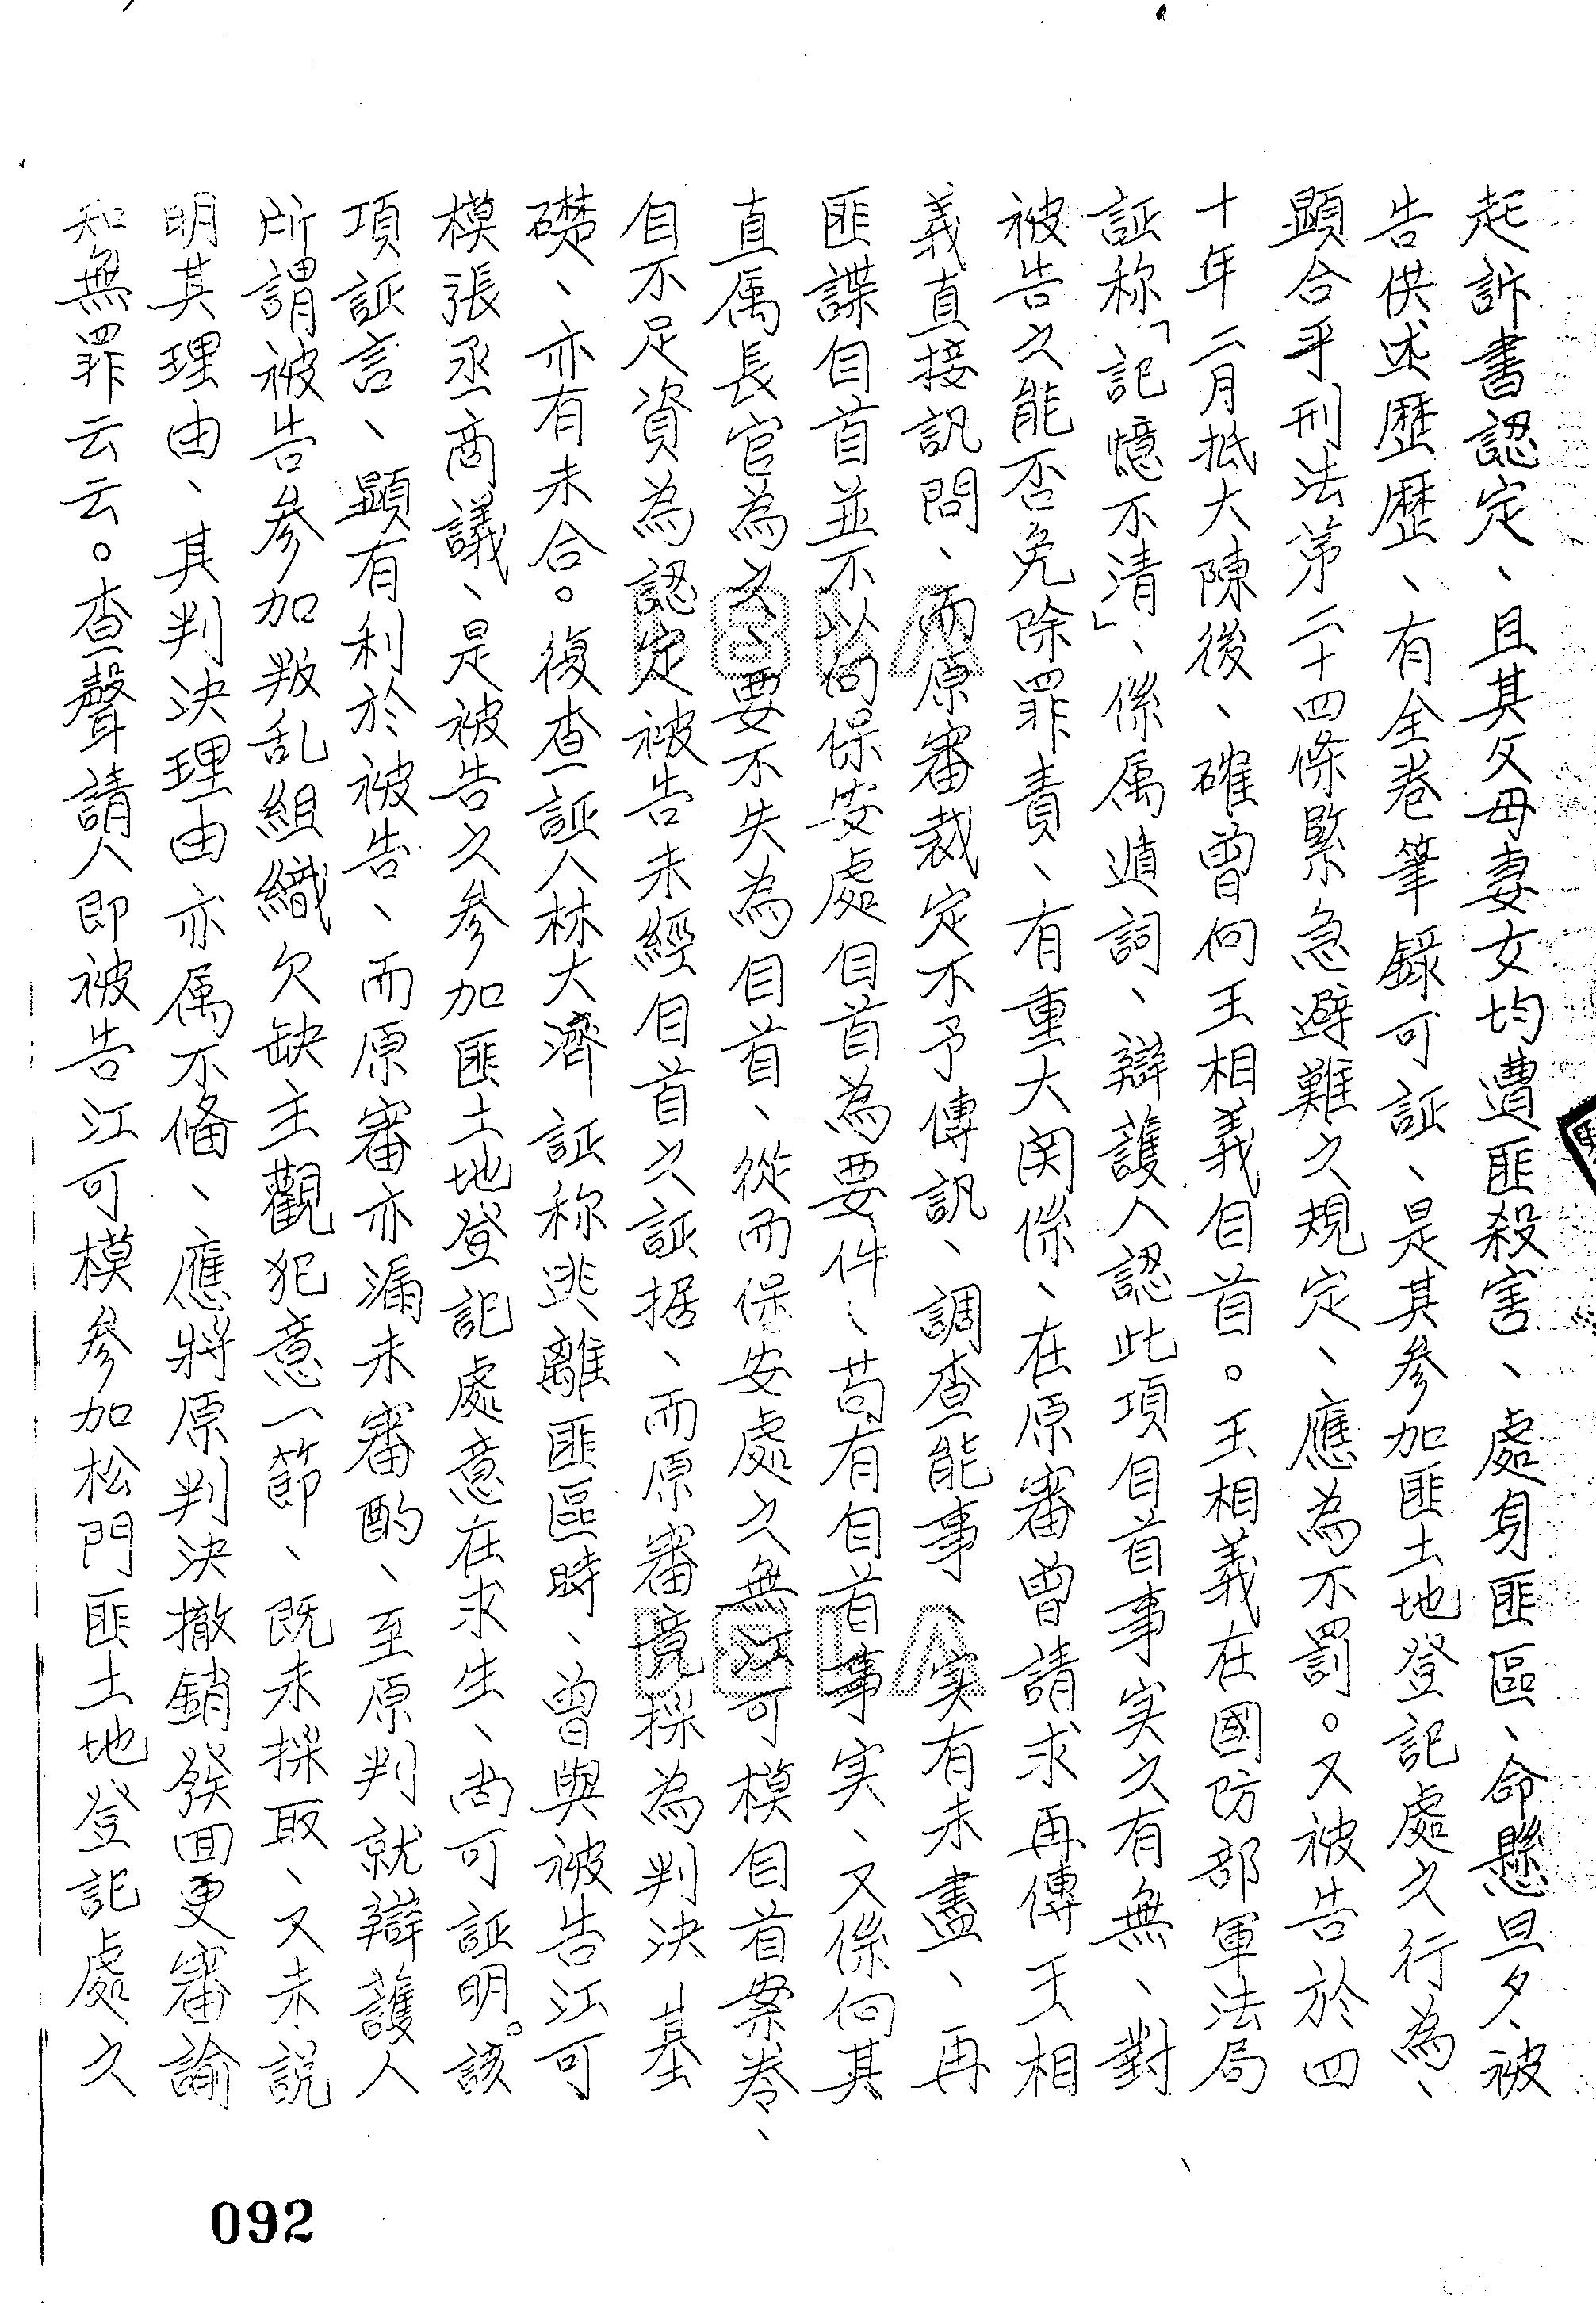 起訴書認定、且其父母妻女均遭匪殺害、處身匪區、命懸旦夕、被
告供述歷歷、有全卷筆錄可証、是其参加匪土地登記處之行為、
顕合乎刑法第二十四條緊急避難之規定、應為不罰。又被告於四
十年二月抵大陳後、確曾向王相義自首。王相義在國防部軍法局
証称「記憶不清」、係属遁詞、辯護人認此項自首事実之有無、對
被告之能否免除罪責、有重大関係、在原審曾請求再傳王相
義直接訊問、而原審裁定不予傳訊、調查能事、実有未盡、再
匪諜自首並不以向保安處自首為要件、苟有自首事実、又係向其
直属長官為之、要不失為自首、從而保安處之無江可模自首案卷、
自不足資為認定被告未經自首之証据、而原審竟採為判決基
礎、亦有未合。復查証人林大濟証称逃離匪區時、曾與被告江可
模張丞商議、是被告之參加匪土地登記處意在求生、尚可証明。該
項証言、顕有利於被告、而原審亦漏未審酌、至原判就辯護人
所謂被告参加叛乱組織欠缺主觀犯意一節、既未採取、又未説
明其理由、其判決理由亦属不備、應將原判決撤銷發囬更審諭
知無罪云云。查聲請人即被告江可模参加松門匪土地登記處之
092